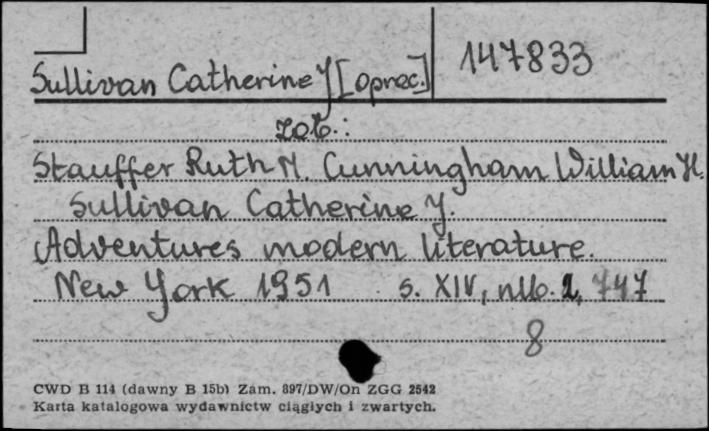 Sullivan Catherine J [oprac.] 147833
zob.:
Stauffer Ruth M. Cunningham William H.
Sullivan Catherine J.
Adventures modern literature.
New York 1951 s. XIV, nlb. 2, 747
8
CWD B 114 (dawny B 15b) Zam. 897/DW/On ZGG 2542
Karta katalogowa wydawnictw ciągłych i zwartych.